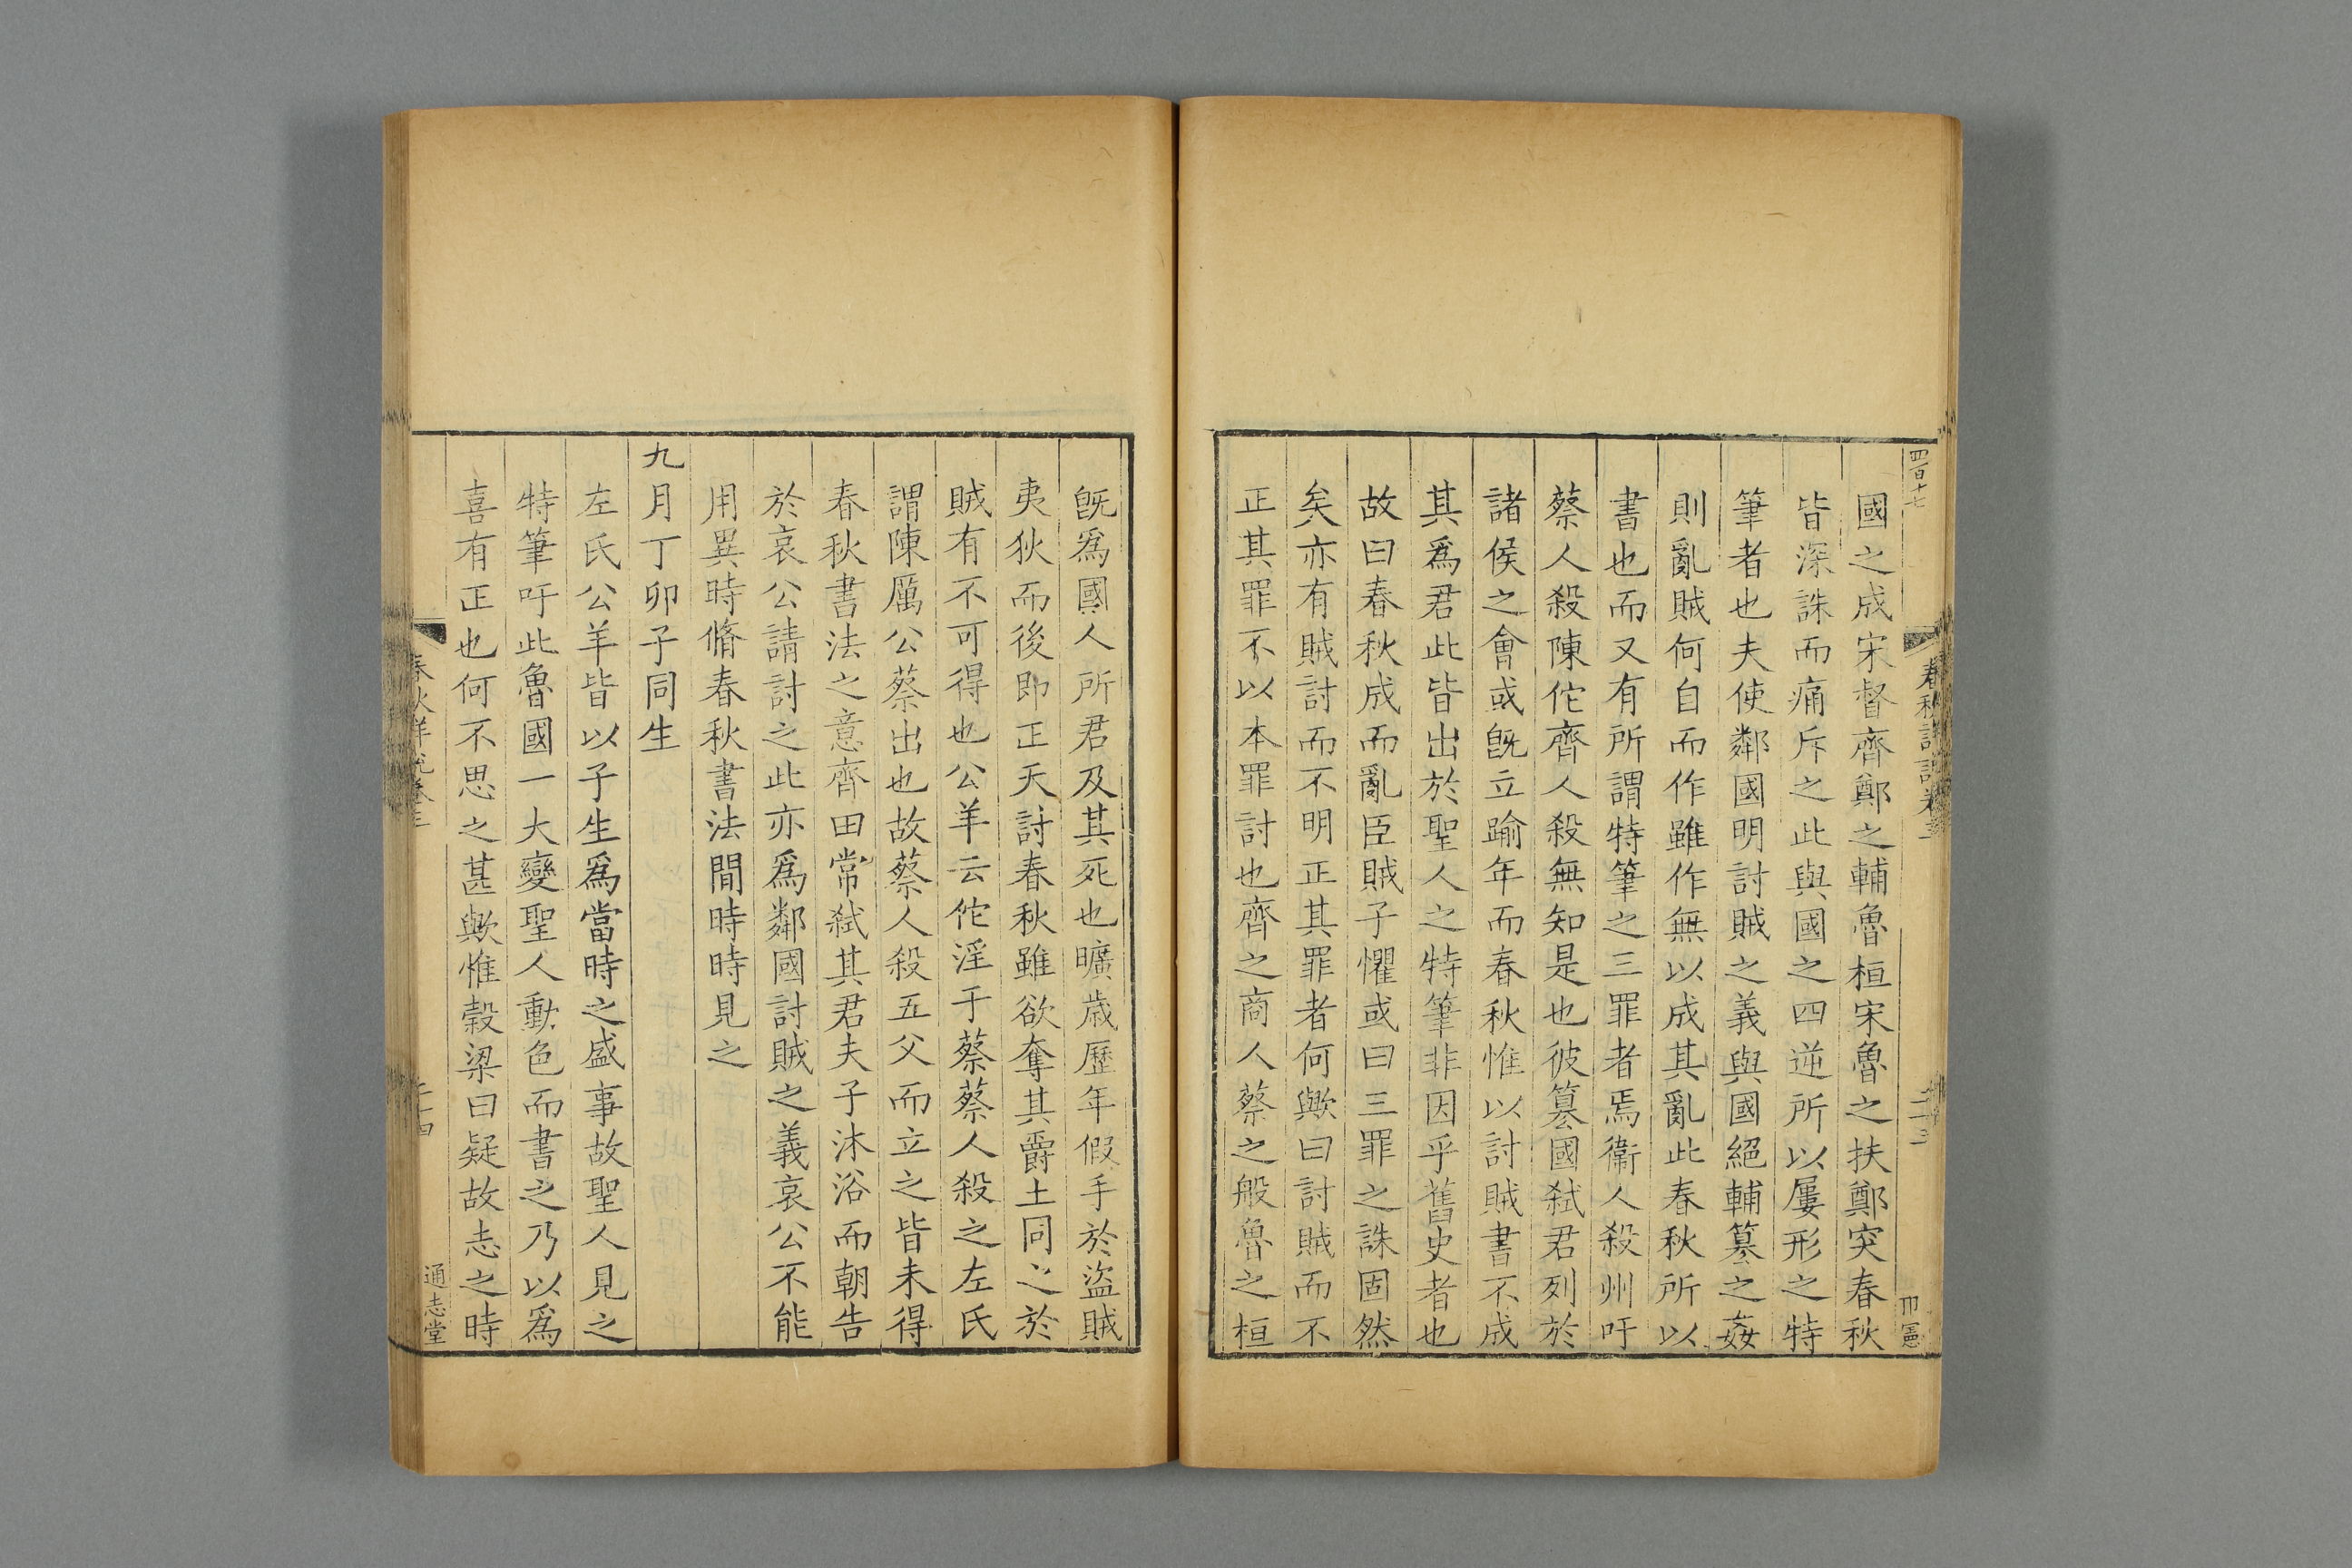 四百十七
春秋詳說卷三
二十三
國之成宋督齊鄭之輔魯桓宋魯之扶鄭突春秋
皆深誅而痛斥之此與國之四逆所以屢形之特
筆者也夫使鄰國明討賊之義與國絕輔篡之姦
則亂賊何自而作雖作無以成其亂此春秋所以
書也而又有所謂特筆之三罪者焉衞人殺州吁
蔡人殺陳佗齊人殺無知是也彼篡國弒君列於
諸侯之會或旣立踰年而春秋惟以討賊書不成
其爲君此皆出於聖人之特筆非因乎舊史者也
故曰春秋成而亂臣賊子懼或曰三罪之誅固然
矣亦有賊討而不明正其罪者何歟曰討賊而不
正其罪不以本罪討也齊之商人蔡之般魯之桓
旣爲國人所君及其死也曠歲歷年假手於盜賊
夷狄而後即正天討春秋雖欲奪其爵土同之於
賊有不可得也公羊云佗淫于蔡蔡人殺之左氏
謂陳厲公蔡出也故蔡人殺五父而立之皆未得
春秋書法之意齊田常弒其君夫子沐浴而朝告
於哀公請討之此亦爲鄰國討賊之義哀公不能
用異時脩春秋書法間時時見之
九月丁卯子同生
左氏公羊皆以子生爲當時之盛事故聖人見之
特筆吁此魯國一大變聖人動色而書之乃以爲
喜有正也何不思之甚歟惟穀梁曰疑故志之時
春秋詳說卷三
二十四
通志堂